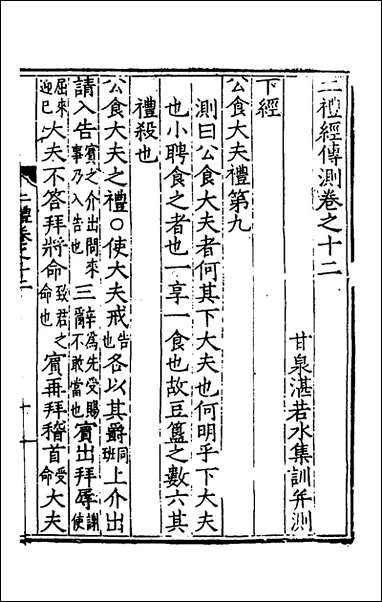 二禮經傳測卷之十二
甘泉湛若水集訓并測
下經
公食大夫禮第九
測曰公食大夫者何其下大夫也何明乎下大夫
也小聘食之者也一享一食也故豆簋之數六其
禮殺也
公食大夫之禮○使大夫戒告也各以其爵同班上介出
請入告賓之介出問來事乃入告也三辭為先受賜不敢當也賓出拜辱謝使
屈來迎已大夫不答拜將命致君之命也賓再拜稽首受命大夫
二禮卷之十二